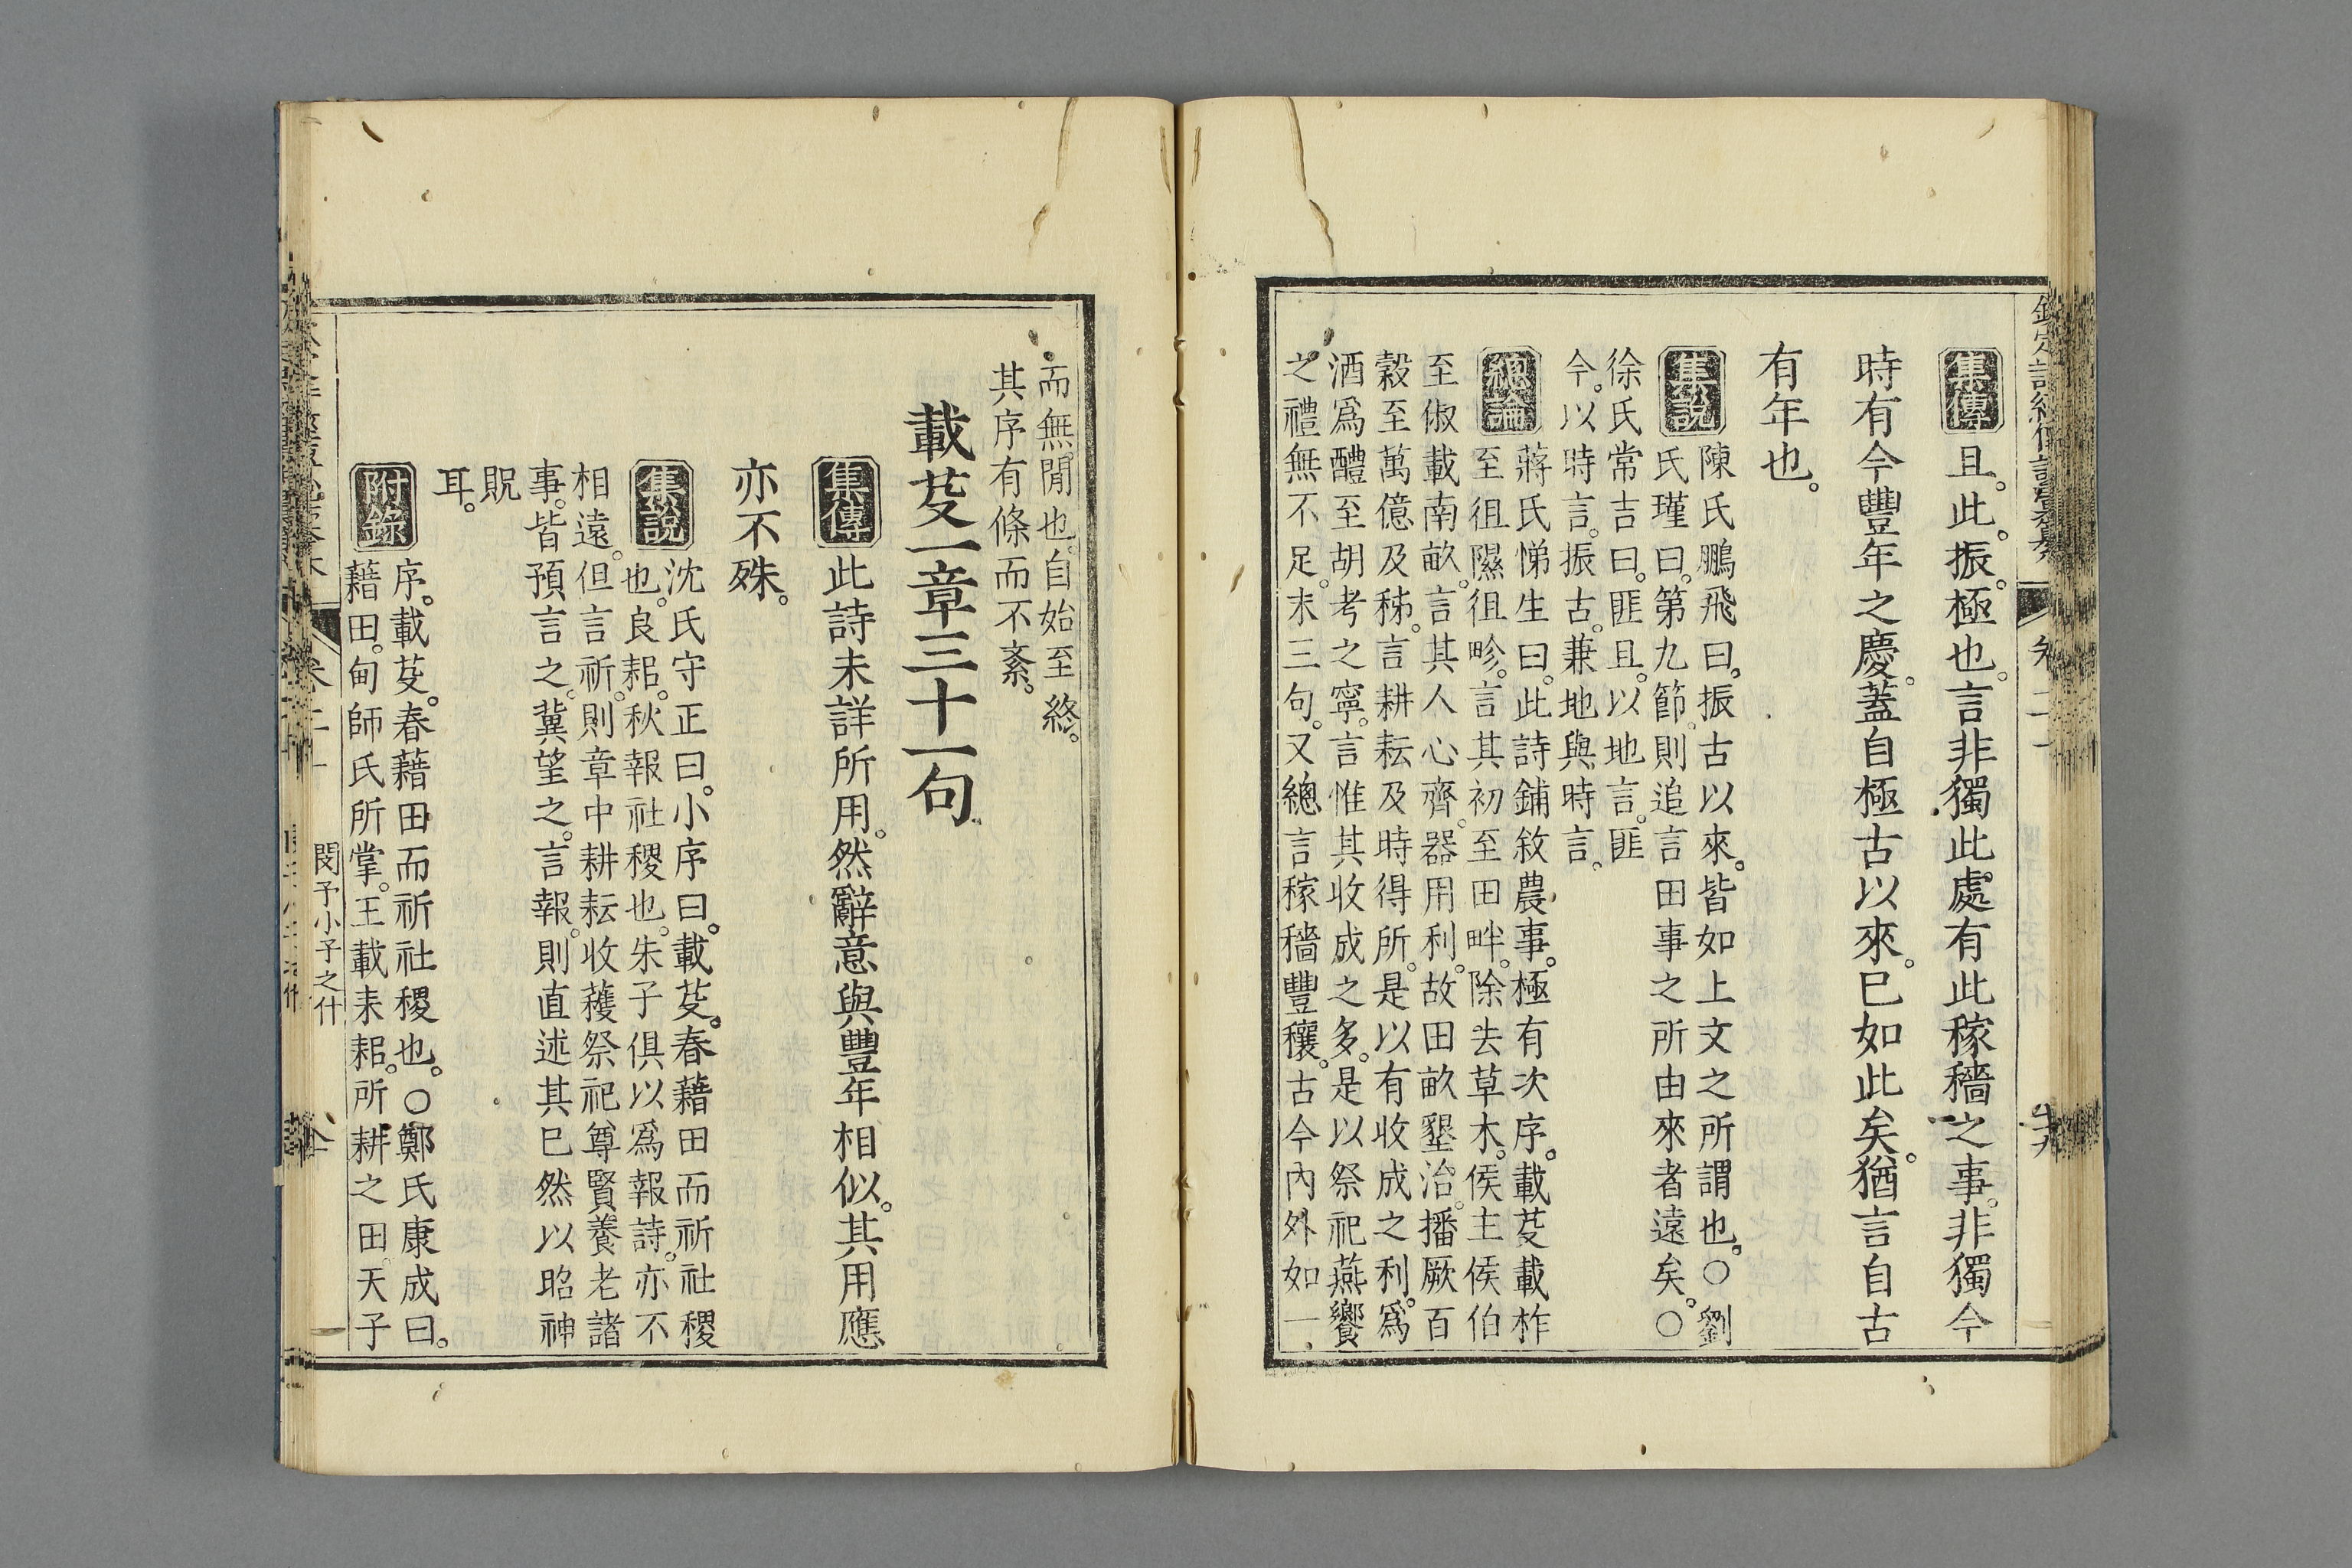 集傳 且。此。振。極也。言非獨此處有此稼穡之事。非獨今
時有今豐年之慶。蓋自極古以來。已如此矣。猶言自古
有年也。
集說 陳氏鵬飛曰。振古以來。皆如上文之所謂也。○劉
氏瑾曰。第九節。則追言田事之所由來者遠矣。○
徐氏常吉曰。匪且。以地言。匪
今。以時言。振古。兼地與時言。
總論 蔣氏悌生曰。此詩鋪敘農事。極有次序。載芟載柞
至徂隰徂畛。言其初至田畔。除去草木。侯主侯伯
至俶載南畝。言其人心齊。器用利。故田畝墾治。播厥百
穀至萬億及秭。言耕耘及時得所。是以有收成之利。爲
酒爲醴至胡考之寧。言惟其收成之多。是以祭祀燕饗
之禮無不足。末三句。又總言稼穡豐穰。古今內外如一。
而無閒也。自始至終。
其序有條而不紊。
載芟一章三十一句
集傳 此詩未詳所用。然辭意與豐年相似。其用應
亦不殊。
集說 沈氏守正曰。小序曰。載芟。春藉田而祈社稷
也。良耜。秋報社稷也。朱子俱以爲報詩。亦不
相遠。但言祈。則章中耕耘收穫祭祀尊賢養老諸
事。皆預言之。冀望之。言報。則直述其已然以昭神
貺
耳。
附錄 序。載芟。春藉田而祈社稷也。○鄭氏康成曰。
藉田。甸師氏所掌。王載耒耜。所耕之田。天子
閔予小子之什